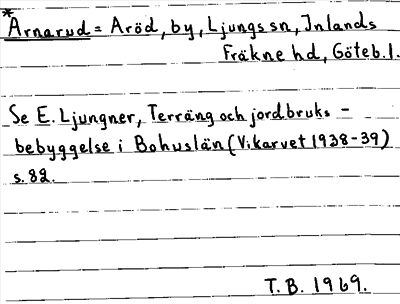 *Arnarud = Aröd, by, Ljungs sn, Inlands
Fräkne hd, Göteb.l.
Se E. Ljungner, Terräng och jordbruks -
bebyggelse i Bohuslän (Vikarvet 1938-39)
s. 82.
T.B. 1969.